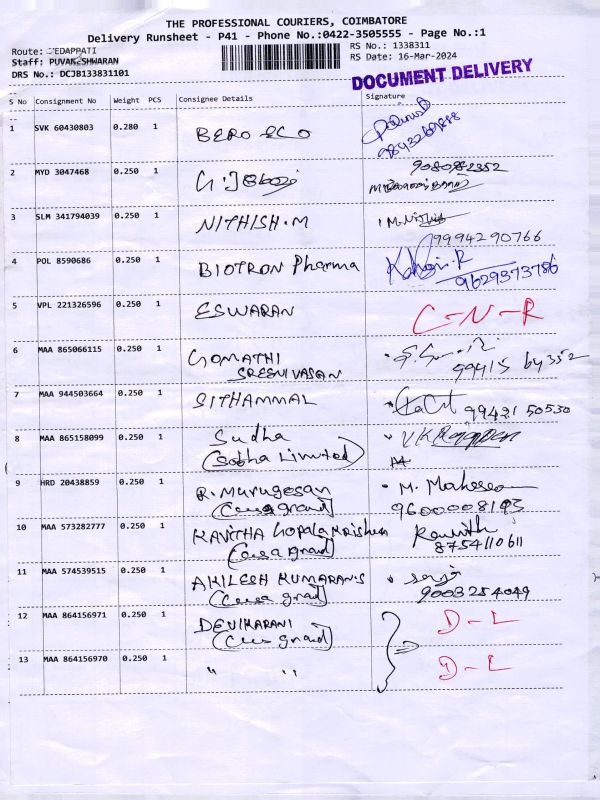 THE PROFESSIONAL COURIERS, COIMBATORE
Delivery Runsheet - P41 - Phone No.:0422-3505555 - Page No.:1
Route: VEDAPPATI
RS No.: 1338311
Staff: PUVANESHWARAN
RS Date: 16-Mar-2024
DRS No.: DCJB133831101
DOCUMENT DELIVERY
S No Consignment No Weight PCS Consignee Details Signature
1 SVK 60430803 0.280 1 BERO ECO
9893269888
2 MYD 3047468 0.250 1 9080982352
3 SLM 341794039 0.250 1 NITHISH.M
9994290766
4 POL 8590686 0.250 1 BIOTRON Pharma
9629373786
5 VPL 221326596 0.250 1 ESWARAN C-N-R
6 MAA 865066115 0.250 1 GOMATHI
SRESNIVASAN 99415 64352
7 MAA 944503664 0.250 1 SITHAMMAL 99421 50530
8 MAA 865158099 0.250 1 Sudha
(Sobha Limited)
9 HRD 20438859 0.250 1 R. Murugesan M.
(Casa grand) 9600008193
10 MAA 573282777 0.250 1 KAVITHA Gopala Krishnan Kavitha
(Casa grand) 8754110611
11 MAA 574539515 0.250 1 AKILESH KUMARAN.S
(Casa grad) 9003254049
12 MAA 864156971 0.250 1 DEVIKARANI D-L
(Casa grand)
13 MAA 864156970 0.250 1 " " D-L